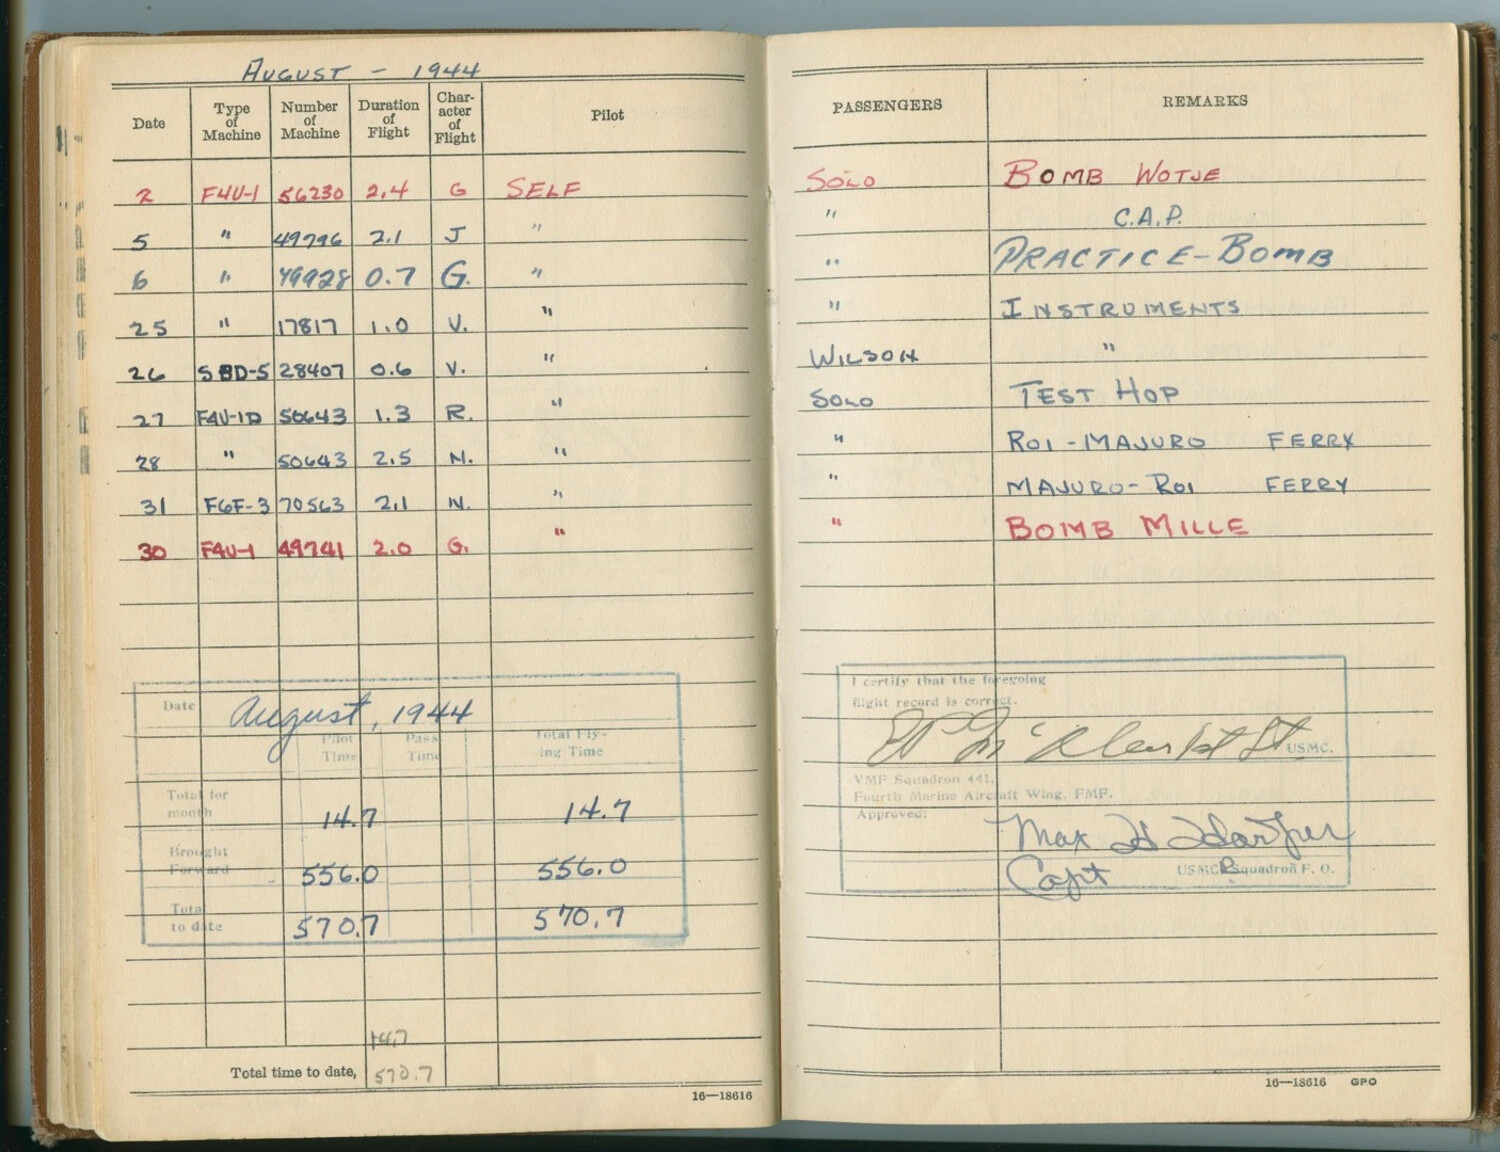 AUGUST - 1944
Date Type of Machine Number of Machine Duration of Flight Char-acter of Flight Pilot PASSENGERS REMARKS
2 F4U-1 56230 2.4 G SELF SOLO BOMB WOTJE
5 " 49796 2.1 J " " C.A.P.
6 " 49928 0.7 G. " " PRACTICE-BOMB
25 " 17817 1.0 V. " " INSTRUMENTS
26 SBD-5 28407 0.6 V. " WILSON "
27 F4U-1D 50643 1.3 R. " SOLO TEST HOP
28 " 50643 2.5 N. " " ROI-MAJURO FERRY
31 F6F-3 70563 2.1 N. " " MAJURO-ROI FERRY
30 F4U-1 49741 2.0 G. " " BOMB MILLE
Date August, 1944
Pilot Time Pass Time Total Fly-ing Time
Total for month 14.7 14.7
Brought Forward 556.0 556.0
Total to date 570.7 570.7
14.7
Total time to date, 570.7
16—18616
I certify that the foregoing
flight record is correct.
USMC.
VMF Squadron 441,
Fourth Marine Aircraft Wing, FMF.
Approved:
Max H
Capt USMCR Squadron F. O.
16—18616 GPO